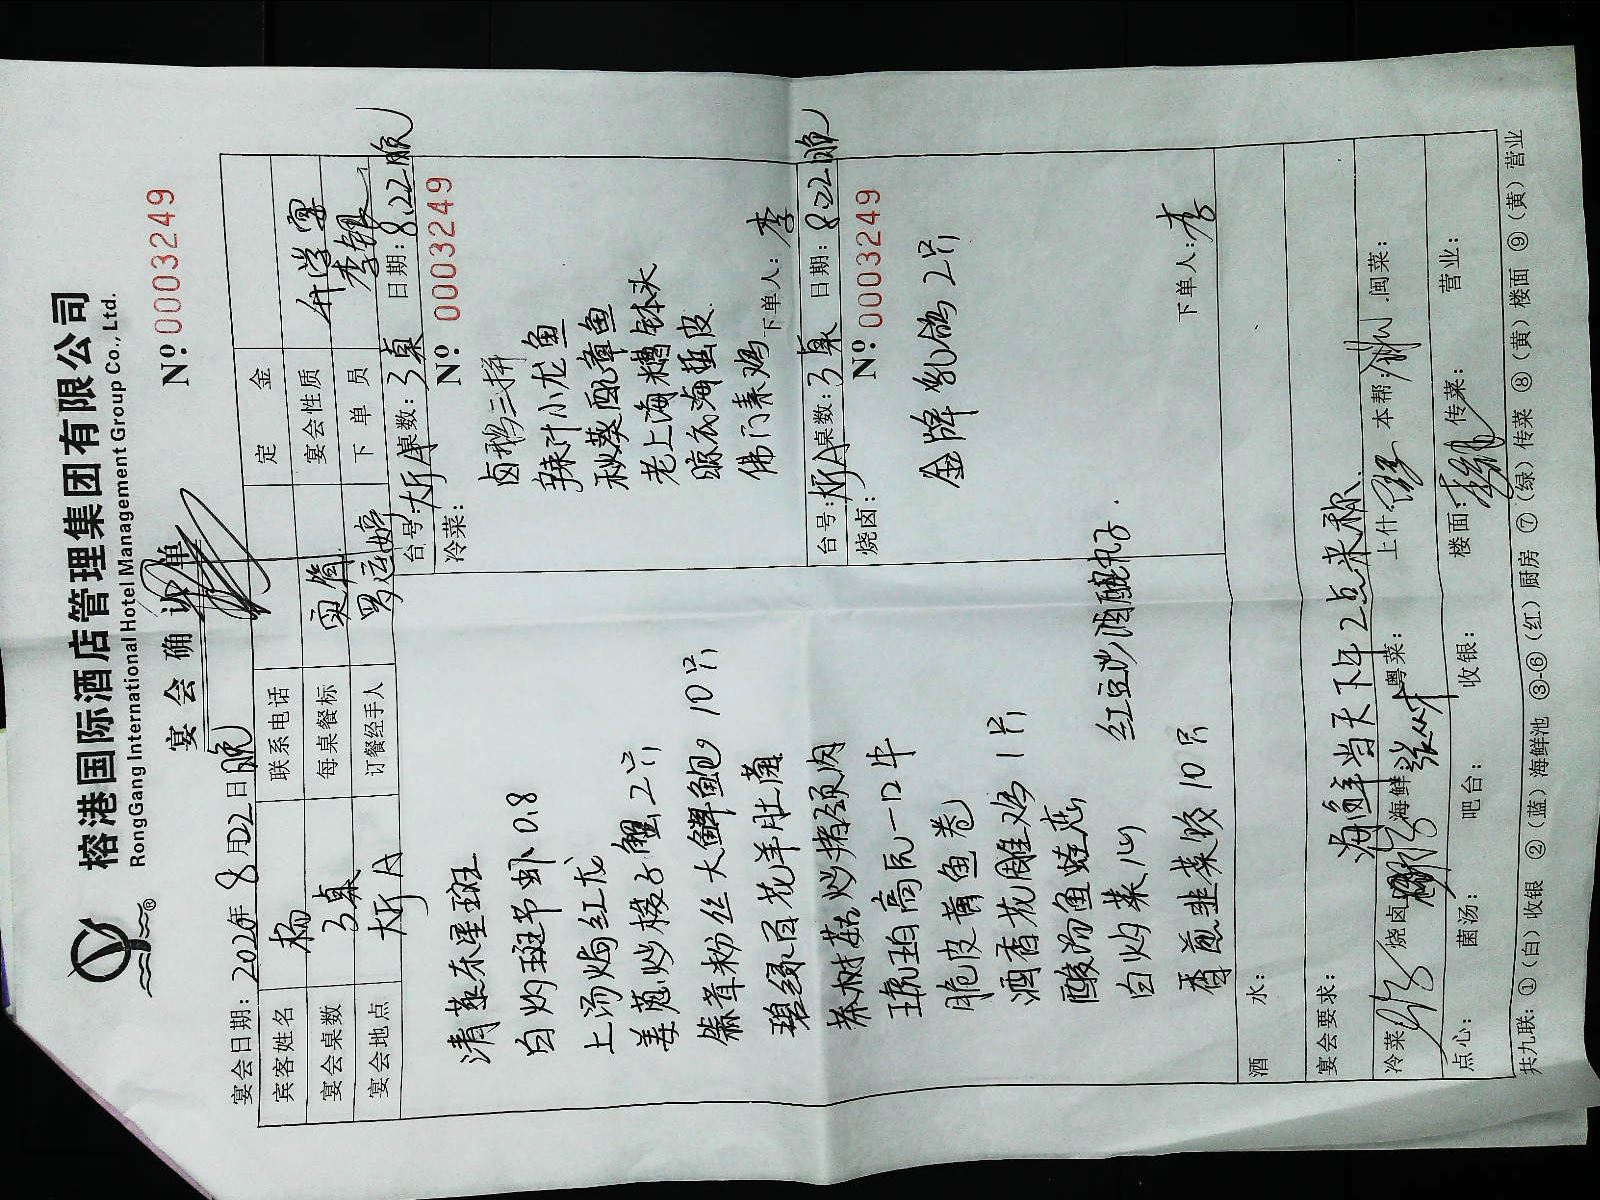 榕港国际酒店管理集团有限公司
RongGang International Hotel Management Group Co., Ltd.
宴会确认单
Nº 0003249
宴会日期: 2020年 8月22日晚
宾客姓名 杨 联系电话 定金
宴会桌数 3桌 每桌餐标 宴会性质 升学宴
宴会地点 大厅A 订餐经手人 罗运婷 下单员 李银
清蒸东星斑
白灼斑节虾 0.8
上汤焗红龙
姜葱炒梭子蟹 2只
蒜茸粉丝大鲜鲍 10只
碧绿百花羊肚菌
茶树菇炒猪颈肉
琥珀高民一口牛
脆皮黄鱼卷
酒香花雕鸡 1只
酸汤鱼蛙恋
白灼菜心
香煎韭菜饺 10只
红豆沙酒酿丸子
台号: 大厅A 桌数: 3桌 日期: 8.22晚
冷菜: Nº 0003249
卤鹅三拼
辣汁小龙鱼
秋葵配章鱼
老上海糟钵头
晾衣海蜇皮
佛门素鸡
下单人: 李
台号: 大厅A 桌数: 3桌 日期: 8.22晚
烧卤: Nº 0003249
金牌乳鸽 2只
下单人: 李
酒水:
宴会要求: 海鲜当天下午2点来称.
冷菜 烧卤 海鲜 粤菜: 上什 本帮: 闽菜:
点心: 菌汤: 吧台: 收银: 楼面: 传菜: 营业:
共九联: ①(白)收银 ②(蓝)海鲜池 ③-⑥(红)厨房 ⑦(绿)传菜 ⑧(黄)楼面 ⑨(黄)营业